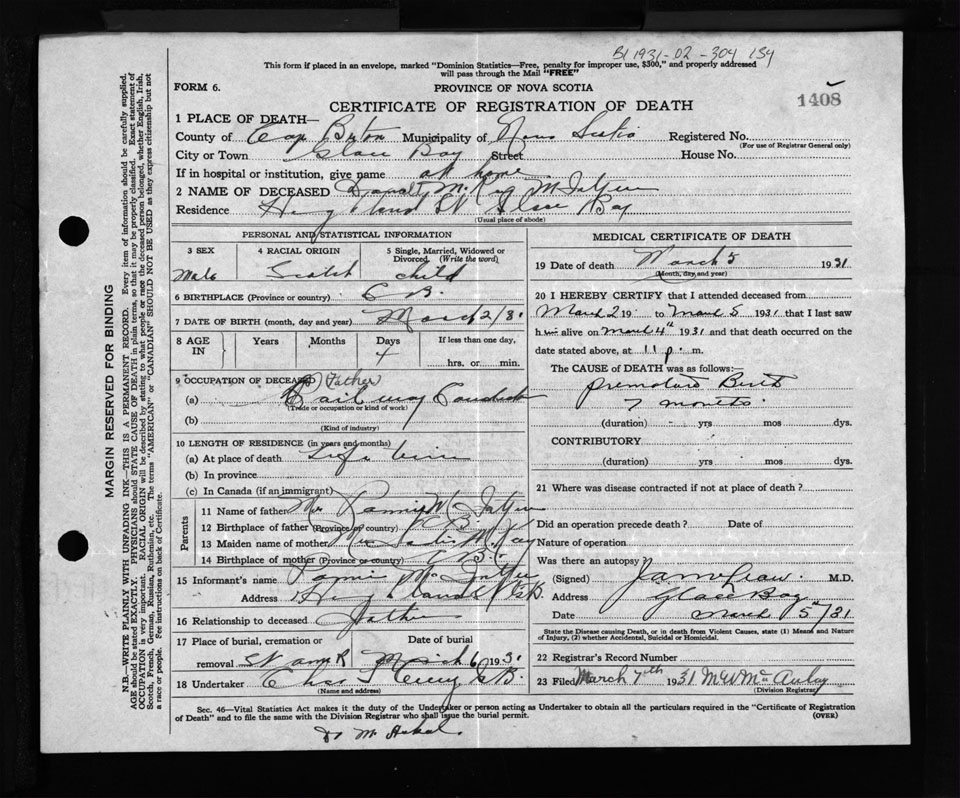 B1 1931-02-304 154
This form if placed in an envelope, marked "Dominion Statistics—Free, penalty for improper use, $300," and properly addressed
will pass through the Mail "FREE"
FORM 6.
PROVINCE OF NOVA SCOTIA
1408
CERTIFICATE OF REGISTRATION OF DEATH
1 PLACE OF DEATH—
County of Cape Breton Municipality of Nova Scotia Registered No.
(For use of Registrar General only)
City or Town Glace Bay Street House No.
If in hospital or institution, give name at home
2 NAME OF DECEASED Donald McKay McIntyre
Residence St Glace Bay
(Usual place of abode)
PERSONAL AND STATISTICAL INFORMATION
3 SEX 4 RACIAL ORIGIN 5 Single, Married, Widowed or
Divorced (Write the word)
Male Scotch child
6 BIRTHPLACE (Province or country) C B.
7 DATE OF BIRTH (month, day and year) March 2/31
8 AGE IN Years Months Days If less than one day,
4
hrs. or min.
9 OCCUPATION OF DECEASED Father
(a) Railway
(Trade or occupation or kind of work)
(b)
(Kind of industry)
10 LENGTH OF RESIDENCE (in years and months)
(a) At place of death Life time
(b) In province
(c) In Canada (if an immigrant)
Parents
11 Name of father Mr McIntyre
12 Birthplace of father (Province or country) C B.
13 Maiden name of mother McKay
14 Birthplace of mother (Province or country) C B.
15 Informant's name McIntyre
Address
16 Relationship to deceased Father
17 Place of burial, cremation or Date of burial
removal March 6 1931
18 Undertaker
(Name and address)
MEDICAL CERTIFICATE OF DEATH
19 Date of death March 5 1931
(Month, day and year)
20 I HEREBY CERTIFY that I attended deceased from
March 2 19 to March 5 1931 that I last saw
him alive on March 4th 1931 and that death occurred on
date stated above, at 11 p. m.
The CAUSE of DEATH was as follows:—
Premature Birth
7 months
(duration) yrs mos dys.
CONTRIBUTORY
(duration) yrs. mos. dys.
21 Where was disease contracted if not at place of death?
Did an operation precede death? Date of
Nature of operation
Was there an autopsy
(Signed) M.D.
Address Glace Bay
Date March 5/31
State the Disease causing Death, or in death from Violent Causes, state (1) Means and Nature
of Injury, (2) whether Accidental, Suicidal or Homicidal.
22 Registrar's Record Number
23 Filed March 7th 1931 McAulay
(Division Registrar)
Sec. 46—Vital Statistics Act makes it the duty of the Undertaker or person acting as Undertaker to obtain all the particulars required in the "Certificate of Registration
of Death" and to file the same with the Division Registrar who shall issue the burial permit.
(OVER)
MARGIN RESERVED FOR BINDING
N.B.—WRITE PLAINLY WITH UNFADING INK—THIS IS A PERMANENT RECORD. Every item of information should be carefully supplied.
AGE should be stated EXACTLY. PHYSICIANS should STATE CAUSE OF DEATH in plain terms, so that it may be properly classified. Exact statement of
OCCUPATION is very important. RACIAL ORIGIN will be described by stating to what people or race the deceased person belonged, whether English, Irish,
Scotch, French, German, Russian, Ruthenian, etc. The terms "AMERICAN" or "CANADIAN" SHOULD NOT BE USED as they express citizenship but not
a race or people. Fee instructions on back of Certificate.